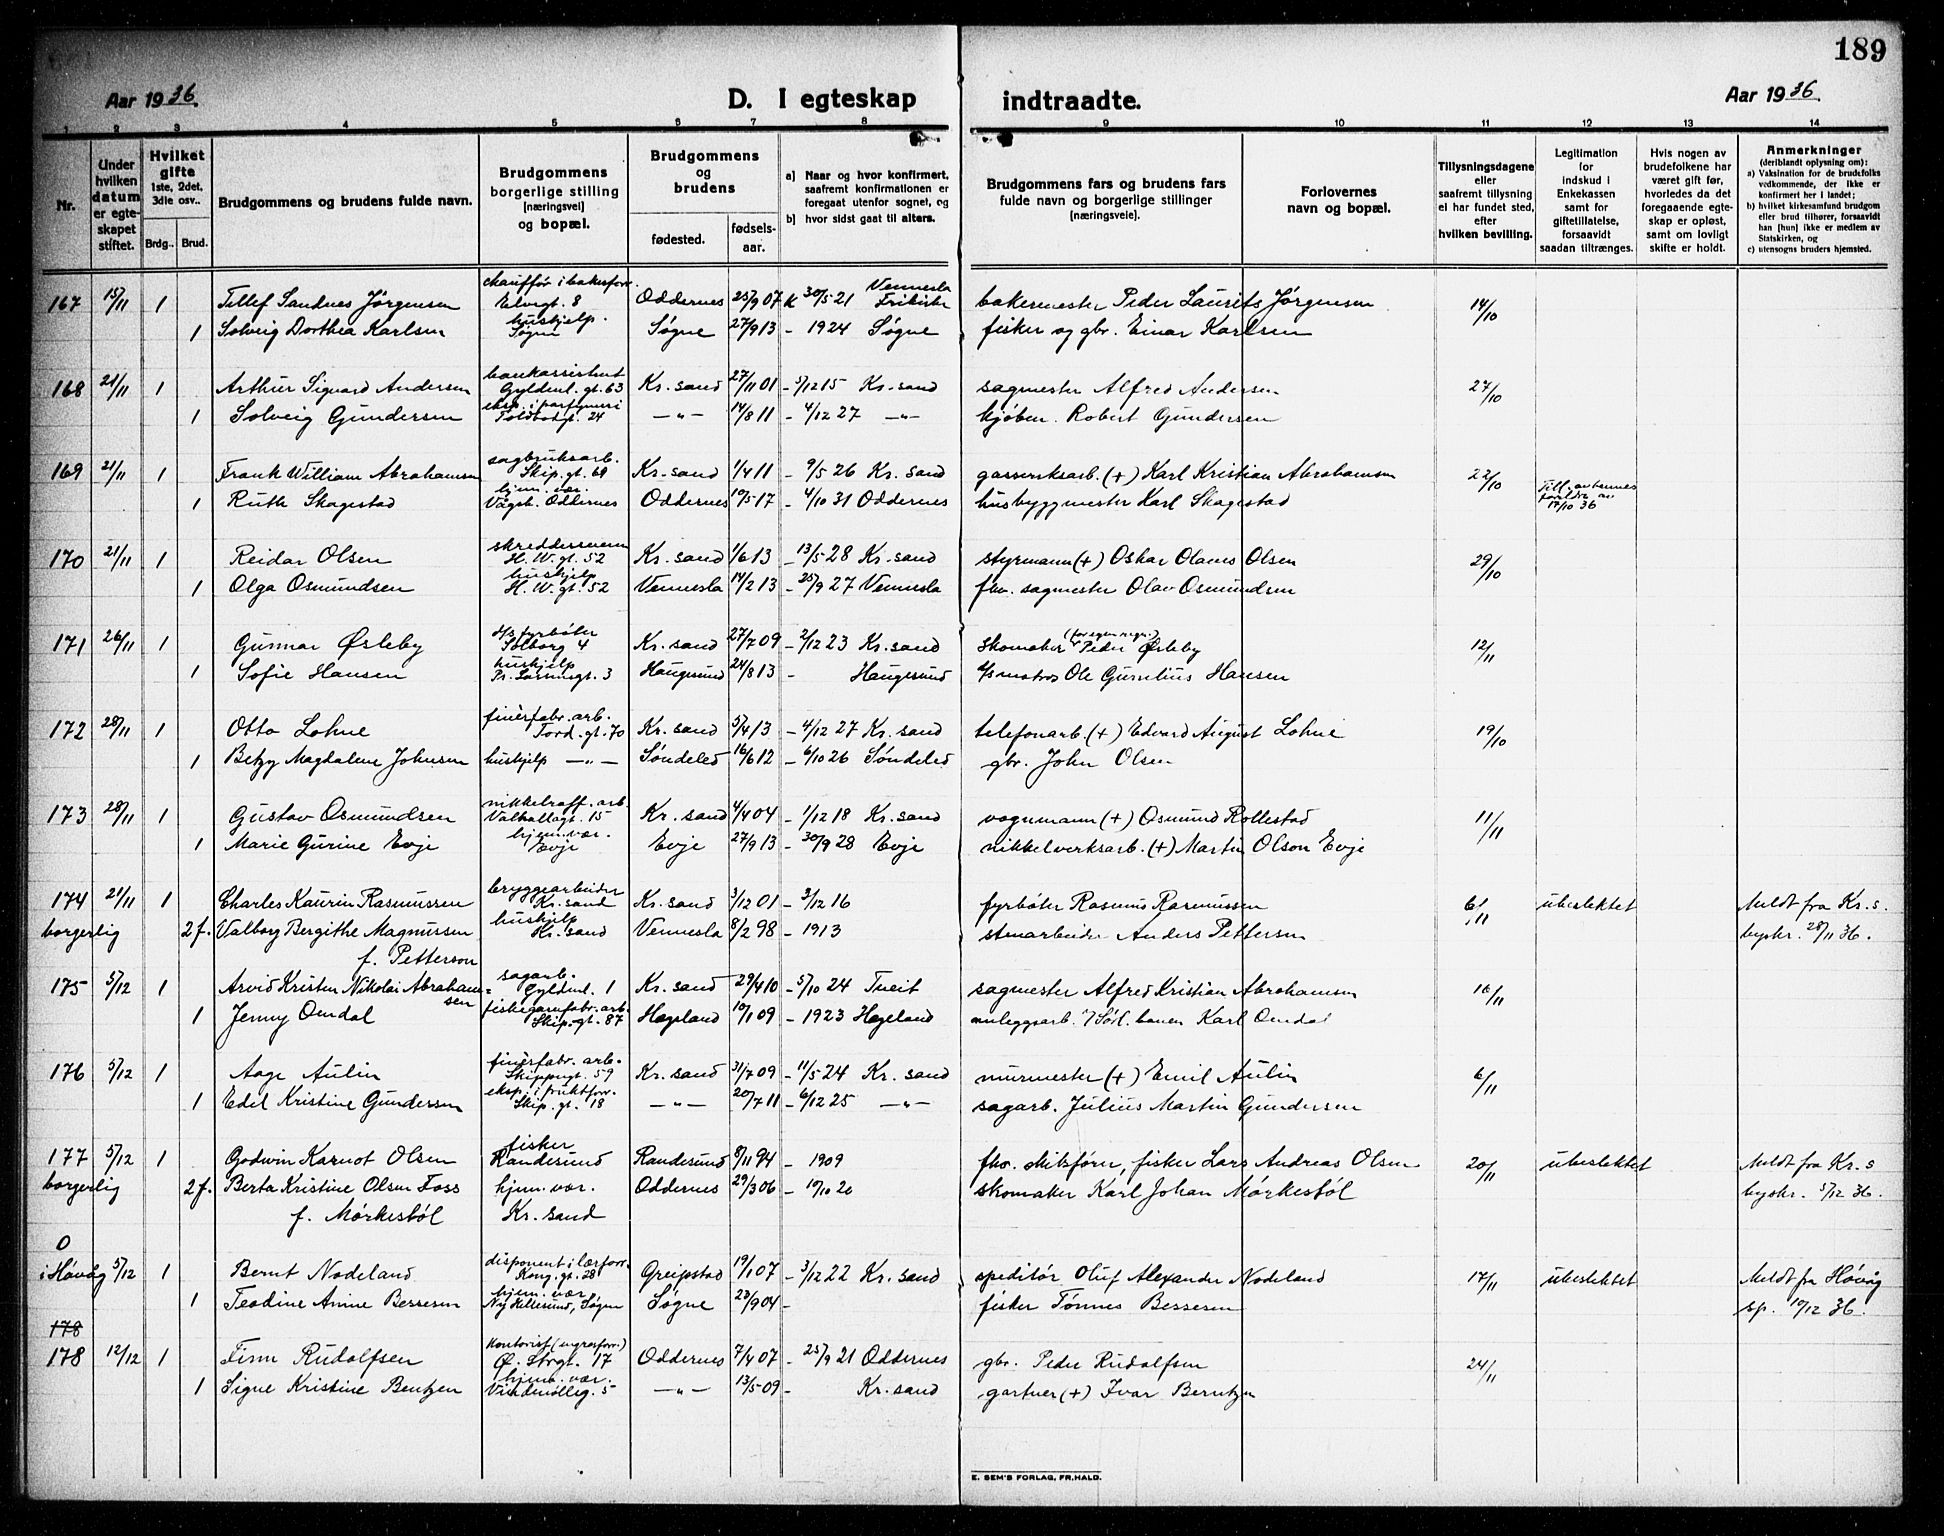 189
Aar 1936. D. I egteskap indtraadte. Aar 1936.
1 2 3 4 5 6 7 8 9 10 11 12 13 14
Nr.
Under hvilken datum er egteskapet stiftet.
Hvilket gifte 1ste, 2det, 3die osv..
Brdg.. Brud.
Brudgommens og brudens fulde navn.
Brudgommens borgerlige stilling [næringsvei] og bopæl.
Brudgommens og brudens
fødested. fødselsaar.
a) Naar og hvor konfirmert, saafremt konfirmationen er foregaat utenfor sognet, og
b) hvor sidst gaat til alters.
Brudgommens fars og brudens fars fulde navn og borgerlige stillinger [næringsveie].
Forlovernes navn og bopæl.
Tillysningsdagene eller saafremt tillysning ei har fundet sted, efter hvilken bevilling.
Legitimation for indskud i Enkekassen samt for giftetillatelse, forsaavidt saadan tiltrænges.
Hvis nogen av brudefolkene har været gift før, hvorledes da det foregaaende egteskap er opløst, samt om lovligt skifte er holdt.
Anmerkninger (deriblandt oplysning om):
a) Vaksination for de brudefolks vedkommende, der ikke er konfirmert her i landet;
b) hvilket kirkesamfund brudgom eller brud tilhører, forsaavidt han [hun] ikke er medlem av Statskirken, og
c) utensogns bruders hjemsted.
167 15/11 1 Tellef Sandnes Jørgensen chauffør i bakerforr. Elvegt. 8 Oddernes 25/9 07 k 30/5 21 Vennesla Frikirke bakermester Peder Laurits Jørgensen 14/10
1 Solveig Dorthea Karlsen hushjelp. Søgne Søgne 27/9 13 – 1924 Søgne fisker og gbr. Einar Karlsen
168 21/11 1 Arthur Sigvard Andersen bankassistent Gyldenl. gt. 63 Kr. sand 27/11 01 – 5/12 15 Kr. sand sagmester Alfred Andersen 27/10
1 Solveig Gundersen eksp. i parfymeri Toldbodg. 24 –"– 14/8 11 – 4/12 27 –"– kjøbm. Robert Gundersen
169 21/11 1 Frank William Abrahamsen sagbruksarb. Skip. gt. 69 Kr. sand 1/4 11 – 9/5 26 Kr. sand gassverksarb. (+) Karl Kristian Abrahamsen 22/10
1 Ruth Skagestad hjem. vær. Vågsb. Oddernes Oddernes 10/5 17 – 4/10 31 Oddernes husbyggmester Karl Skagestad Till. av hennes foreldre av 17/10 36
170 21/11 1 Reidar Olsen skreddersvenn H. W. gt. 52 Kr. sand 1/6 13 – 13/5 28 Kr. sand styrmann (+) Oskar Olaves Olsen 29/10
1 Olga Osmundsen hushjelp H. W. gt. 52 Vennesla 14/2 13 – 25/9 27 Vennesla fhv. sagmester Olav Osmundsen
171 26/11 1 Gunnar Ørleby d/s fyrbøter Solborg 4 Kr. sand 27/7 09 – 2/12 23 Kr. sand skomaker (for egen regn.) Peder Ørleby 12/11
1 Sofie Hansen hushjelp 3 Haugesund 24/8 13 – Haugesund d/s matros Ole Hansen
172 28/11 1 Otto Lohne finérfabr. arb. Tord. gt. 70 Kr. sand 5/4 13 – 4/12 27 Kr. sand telefonarb. (+) Edvard August Lohne 19/10
1 Betzy Magdalene Johnsen hushjelp –"– Søndeled 16/6 12 – 6/10 26 Søndeled gbr. John Olsen
173 28/11 1 Gustav Osmundsen nikkelraff. arb. Valhallagt. 15 Kr. sand 4/4 04 – 1/12 18 Kr. sand vognmann (+) Osmund Rollestad 11/11
1 Marie Gurine Evje hjem. vær. Evje Evje 27/9 13 – 30/9 28 Evje nikkelverksarb. (+) Martin Olson Evje
174 21/11 1 Charles Kaurin Rasmussen bryggearbeider Kr. sand Kr. sand 3/12 01 – 3/12 16 fyrbøter Rasmus Rasmussen 6/11 ubeslektet Meldt fra Kr. s.
borgerlig 2 f. Valborg Bergithe Magnussen hushjelp Kr. sand Vennesla 8/2 98 – 1913 stenarbeider Anders Pettersen byskr. 28/11 36.
f. Petterson
175 5/12 1 Arvid Kristen Nikolai Abrahamsen sagarb. Gyldenl. 1 Kr. sand 29/4 10 – 5/10 24 Tveit sagmester Alfred Kristian Abrahamsen 16/11
1 Jenny Omdal fiskegarnfabr. arb. Skip. gt. 87 Hægeland 10/1 09 – 1923 Hægeland anleggsarb. v/ Sørl. banen Karl Omdal
176 5/12 1 Aage Aulin finérfabr. arb. Skippergt. 59 Kr. sand 31/7 09 – 11/5 24 Kr. sand murmester (+) Emil Aulin 6/11
1 Edel Kristine Gundersen eksp. i fruktforr. Skip. gt. 18 –"– 20/7 11 – 6/12 25 –"– sagarb. Julius Martin Gundersen
177 5/12 1 Godwin Karnot Olsen fisker Randesund Randesund 8/11 94 – 1909 fhv. fisker Lars Andreas Olsen 20/11 ubeslektet Meldt fra Kr. s
borgerlig 2 f. Berta Kristine Olsen Foss hjem. vær. Oddernes 29/3 06 – 10/10 20 skomaker Karl Johan Mørkesdøl byskr. 5/12 36.
f. Mørkesdøl Kr. sand
0
i Høvåg 5/12 1 Bernt Nodeland disponent i lærforr. Kong. gt. 28 Greipstad 19/1 07 – 3/12 22 Kr. sand speditør Oluf Alexander Nodeland 17/11 ubeslektet Meldt fra Høvåg
1 Teodine Anine Bessesen hjem. vær Ny Hellesund, Søgne Søgne 23/9 04 – fisker Tønnes Bessesen sp. 10/12 36.
178
178 12/12 1 Finn Rudolfsen kontorist (engrosforr.) Ø. Strgt. 17 Oddernes 7/4 07 – 25/9 21 Oddernes gbr. Peder Rudolfsen 24/11
1 Signe Kristine Berntzen hjem. vær. 5 –"– 13/5 09 – Kr. sand gartner (+) Ivar Berntzen
E. SEM'S FORLAG, FR.HALD.